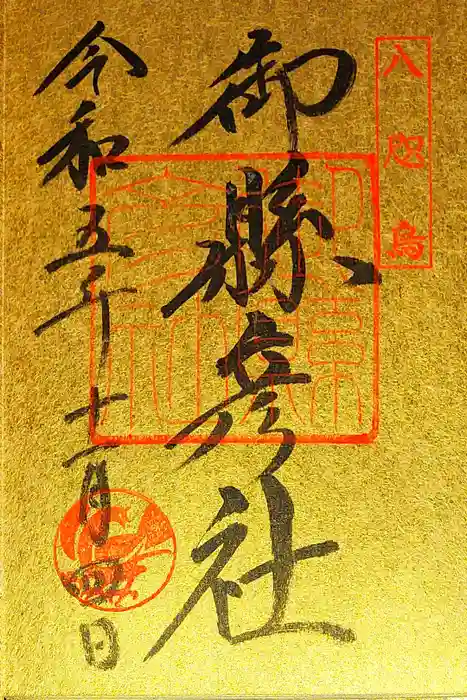 八咫烏
御縣彦社
令和五年十一月四日